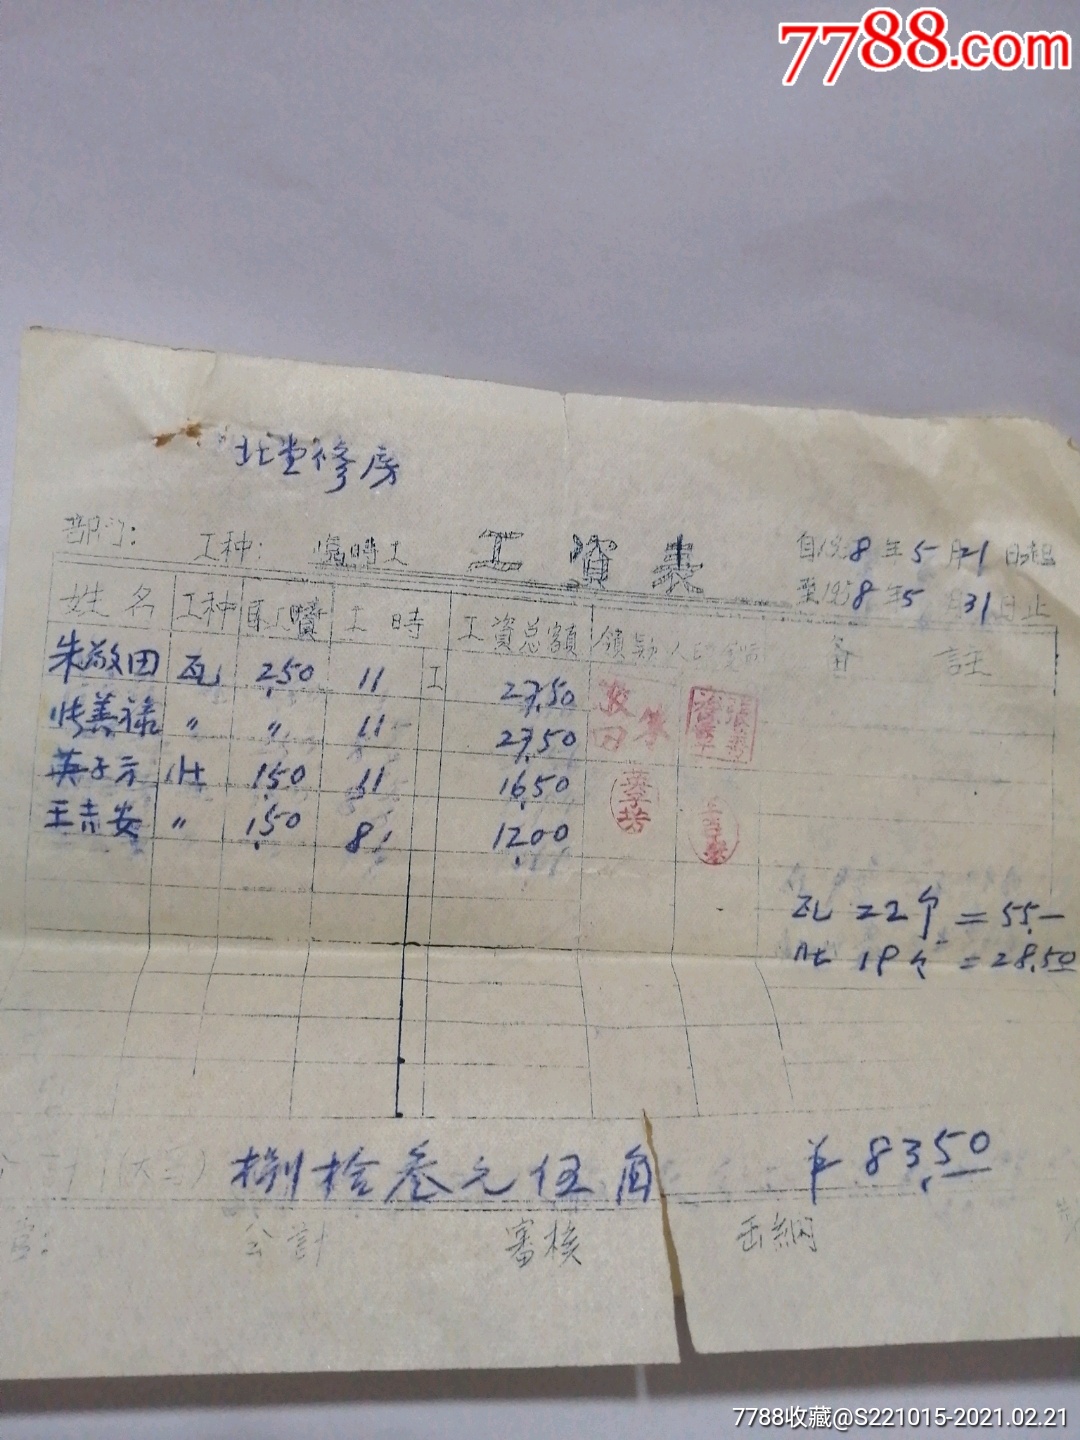 7788.com
北堂修房
部门： 工种： 临時工 工資表 自1958年5月21日起
至1958年5月31日止
姓名 工种 工時 工資总額 領款人印 备註
朱敬田 瓦 2.50 11 工 27.50
张善禄 〃 〃 11 27.50
英子方 壮 1.50 11 16.50
王吉安 〃 1.50 8 12.00
瓦 22个 = 55.—
壮 19个 = 28.50
(大写) 捌拾叁元伍角 ￥83.50
会計 審核 出納
7788收藏@S221015-2021.02.21